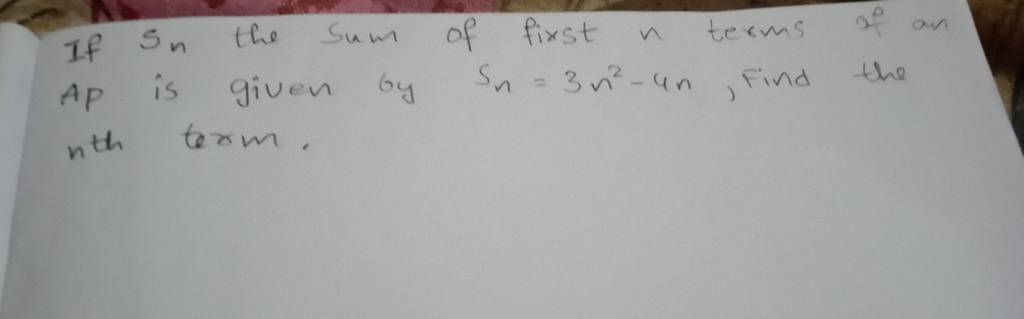 If Sn the Sum of first n terms of an
AP is given by Sn = 3n² - 4n , Find the
nth term .